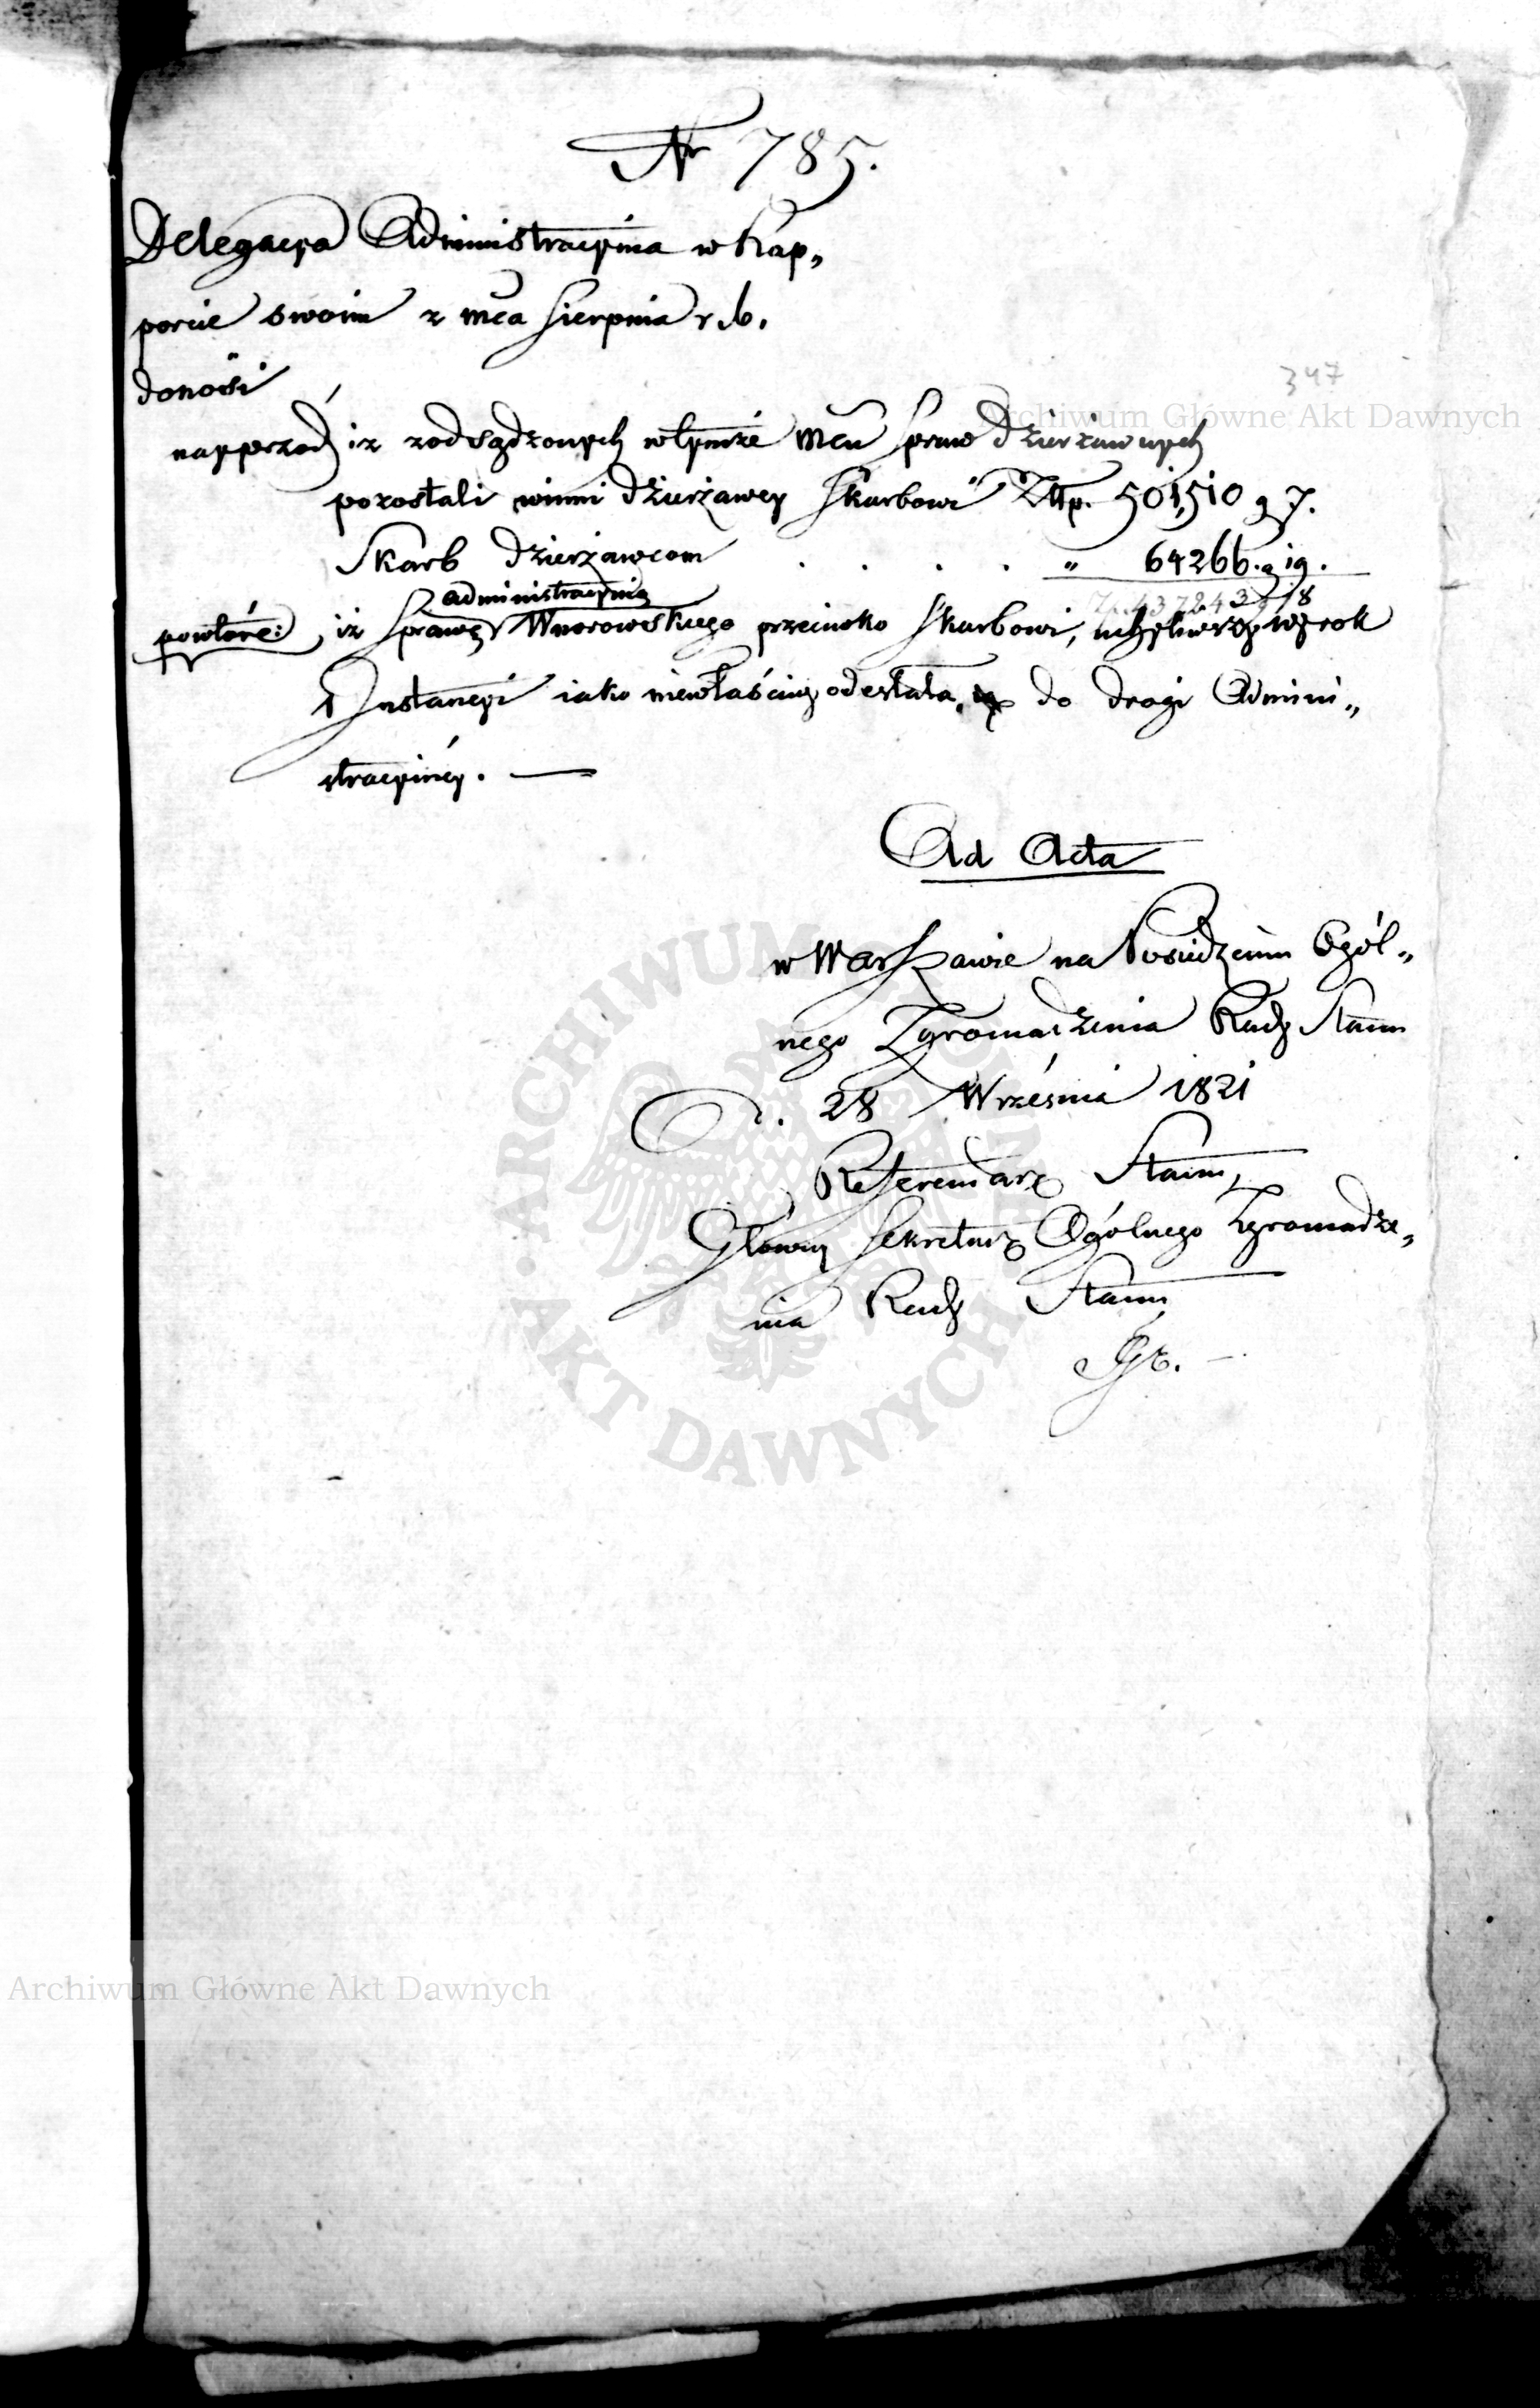 Nr 785.
Delegacya Administracyina w Rap„
porcie swoim z mca Sierpnia r. b.
donosi
347
Archiwum Główne Akt Dawnych
nayprzod iż z odsądzonych w tymże mcu spraw dzierżawnych
pozostali winni dzierżawcy Skarbowi Złtp. 501,510 g 7.
Skarb dzierżawcom . . . . „ 64266. g 19.
administracyiną
powtóre: iż sprawę Wnorowskiego przeciwko Skarbowi, uchyliwszy wyrok
1 Instancyi iako niewłaściwy odesłała, do drogi Admini„
stracyinéy. —
Ad Acta
w Warszawie na Posiedzeniu Ogól„
nego Zgromadzenia Rady Stanu
d. 28 Września 1821
Referendarz Stanu,
Główny Sekretarz Ogólnego Zgromadze„
nia Rady Stanu
ARCHIWUM GŁÓWNE AKT DAWNYCH
Archiwum Główne Akt Dawnych